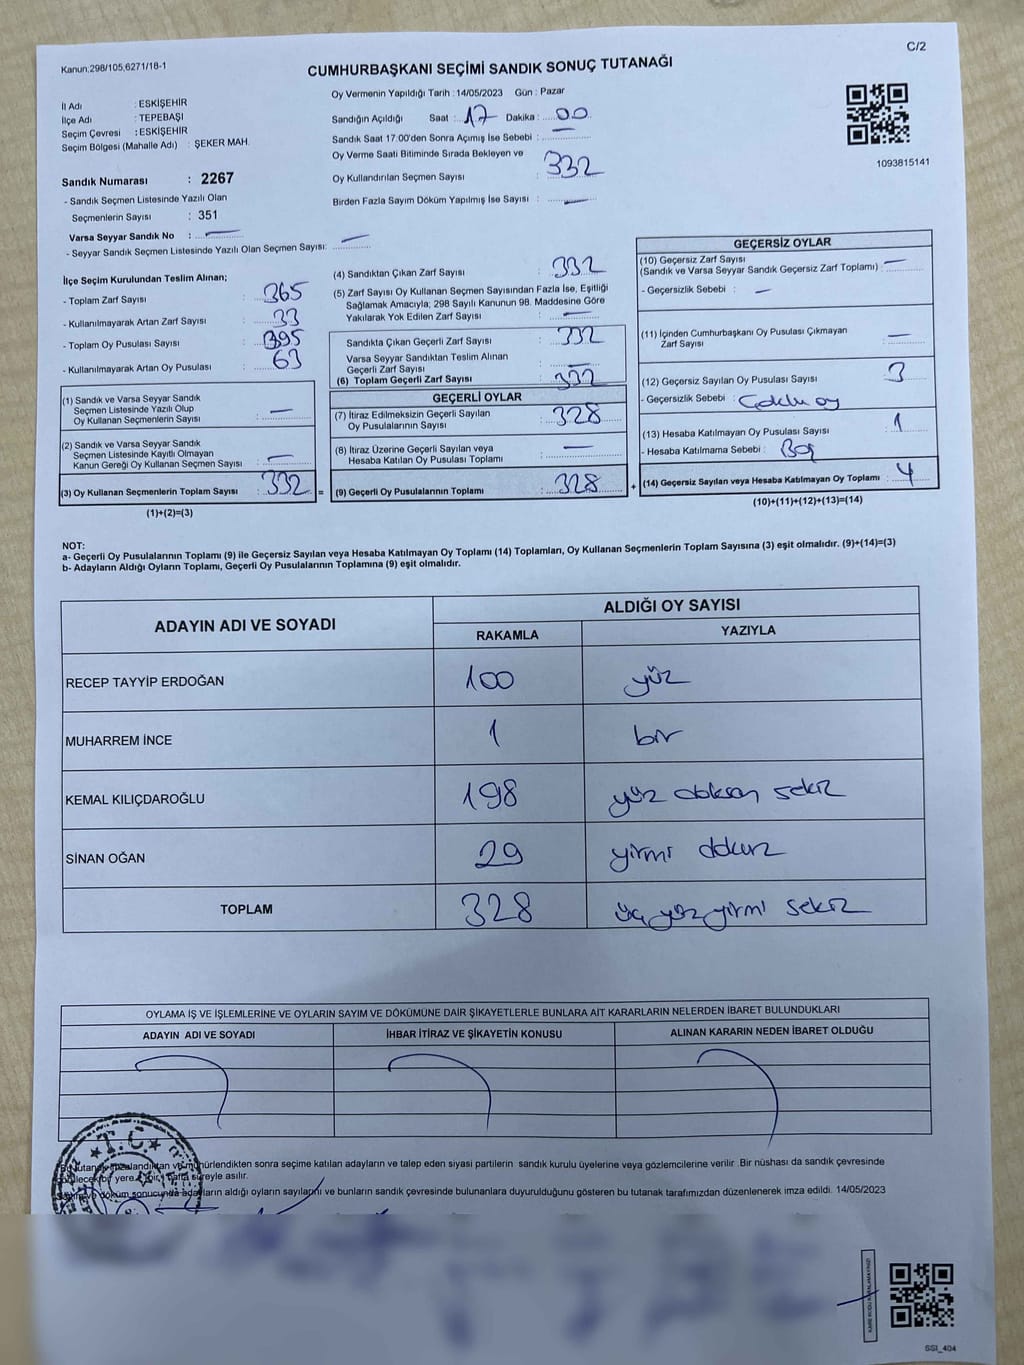 C/2
Kanun:298/105,6271/18-1
CUMHURBAŞKANI SEÇİMİ SANDIK SONUÇ TUTANAĞI
İl Adı : ESKİŞEHİR
İlçe Adı : TEPEBAŞI
Seçim Çevresi : ESKİŞEHİR
Seçim Bölgesi (Mahalle Adı) : ŞEKER MAH.
Sandık Numarası : 2267
- Sandık Seçmen Listesinde Yazılı Olan
Seçmenlerin Sayısı : 351
Varsa Seyyar Sandık No :
- Seyyar Sandık Seçmen Listesinde Yazılı Olan Seçmen Sayısı:
Oy Vermenin Yapıldığı Tarih :14/05/2023 Gün : Pazar
Sandığın Açıldığı Saat : 17 Dakika : 00
Sandık Saat 17.00'den Sonra Açımış İse Sebebi :
Oy Verme Saati Bitiminde Sırada Bekleyen ve
Oy Kullandırılan Seçmen Sayısı : 332
Birden Fazla Sayım Döküm Yapılmış İse Sayısı :
1093815141
İlçe Seçim Kurulundan Teslim Alınan;
- Toplam Zarf Sayısı : 365
- Kullanılmayarak Artan Zarf Sayısı : 33
- Toplam Oy Pusulası Sayısı : 395
- Kullanılmayarak Artan Oy Pusulası : 63
(1) Sandık ve Varsa Seyyar Sandık
Seçmen Listesinde Yazılı Olup
Oy Kullanan Seçmenlerin Sayısı : —
(2) Sandık ve Varsa Seyyar Sandık
Seçmen Listesinde Kayıtlı Olmayan
Kanun Gereği Oy Kullanan Seçmen Sayısı : —
(3) Oy Kullanan Seçmenlerin Toplam Sayısı : 332
(1)+(2)=(3)
(4) Sandıktan Çıkan Zarf Sayısı : 332
(5) Zarf Sayısı Oy Kullanan Seçmen Sayısından Fazla İse, Eşitliği
Sağlamak Amacıyla; 298 Sayılı Kanunun 98. Maddesine Göre
Yakılarak Yok Edilen Zarf Sayısı : —
Sandıkta Çıkan Geçerli Zarf Sayısı : 332
Varsa Seyyar Sandıktan Teslim Alınan
Geçerli Zarf Sayısı : —
(6) Toplam Geçerli Zarf Sayısı : 332
GEÇERLİ OYLAR
(7) İtiraz Edilmeksizin Geçerli Sayılan
Oy Pusulalarının Sayısı : 328
(8) İtiraz Üzerine Geçerli Sayılan veya
Hesaba Katılan Oy Pusulası Toplamı : —
= (9) Geçerli Oy Pusulalarının Toplamı : 328
GEÇERSİZ OYLAR
(10) Geçersiz Zarf Sayısı
(Sandık ve Varsa Seyyar Sandık Geçersiz Zarf Toplamı) : —
- Geçersizlik Sebebi : —
(11) İçinden Cumhurbaşkanı Oy Pusulası Çıkmayan
Zarf Sayısı : —
(12) Geçersiz Sayılan Oy Pusulası Sayısı : 3
- Geçersizlik Sebebi : Çoklu oy
(13) Hesaba Katılmayan Oy Pusulası Sayısı : 1
- Hesaba Katılmama Sebebi : Boş
+ (14) Geçersiz Sayılan veya Hesaba Katılmayan Oy Toplamı : 4
(10)+(11)+(12)+(13)=(14)
NOT:
a- Geçerli Oy Pusulalarının Toplamı (9) ile Geçersiz Sayılan veya Hesaba Katılmayan Oy Toplamı (14) Toplamları, Oy Kullanan Seçmenlerin Toplam Sayısına (3) eşit olmalıdır. (9)+(14)=(3)
b- Adayların Aldığı Oyların Toplamı, Geçerli Oy Pusulalarının Toplamına (9) eşit olmalıdır.
ADAYIN ADI VE SOYADI ALDIĞI OY SAYISI
RAKAMLA YAZIYLA
RECEP TAYYİP ERDOĞAN 100 yüz
MUHARREM İNCE 1 bir
KEMAL KILIÇDAROĞLU 198 yüz doksan sekiz
SİNAN OĞAN 29 yirmi dokuz
TOPLAM 328 üç yüz yirmi sekiz
OYLAMA İŞ VE İŞLEMLERİNE VE OYLARIN SAYIM VE DÖKÜMÜNE DAİR ŞİKAYETLERLE BUNLARA AİT KARARLARIN NELERDEN İBARET BULUNDUKLARI
ADAYIN ADI VE SOYADI İHBAR İTİRAZ VE ŞİKAYETİN KONUSU ALINAN KARARIN NEDEN İBARET OLDUĞU
T.C.
mühürlendikten sonra seçime katılan adayların ve talep eden siyasi partilerin sandık kurulu üyelerine veya gözlemcilerine verilir .Bir nüshası da sandık çevresinde
bir yere bir hafta süreyle asılır.
döküm sonucunda adayların aldığı oyların sayılarını ve bunların sandık çevresinde bulunanlara duyurulduğunu gösteren bu tutanak tarafımızdan düzenlenerek imza edildi. 14/05/2023
SSI_404